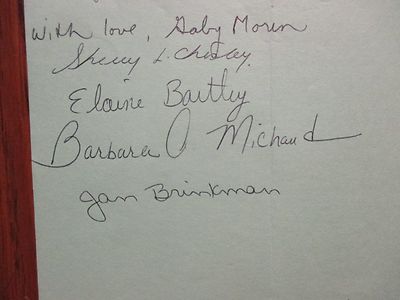 with love, Gaby Morin
Sherry L. Chesley
Elaine Bartley
Barbara O Michaud
Jan Brinkman